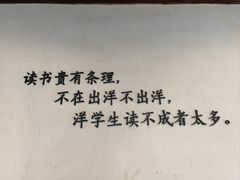 读书贵有条理，
不在出洋不出洋，
洋学生读不成者太多。